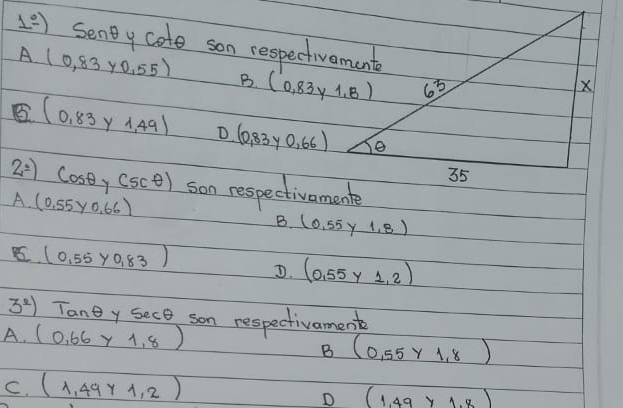 1º) Senθ y Cotθ son respectivamente
A. (0,83 y 0,55)
B. (0,83 y 1,8)
63
x
C. (0,83 y 1,49)
D. (0,83 y 0,66)
θ
35
2º) Cosθ y Cscθ) son respectivamente
A. (0,55 y 0,66)
B. (0,55 y 1,8)
C. (0,55 y 0,83)
D. (0,55 y 1,2)
3º) Tanθ y Secθ son respectivamente
A. (0,66 y 1,8)
B (0,55 y 1,8)
C. (1,49 y 1,2)
D (1,49 y 1,8)